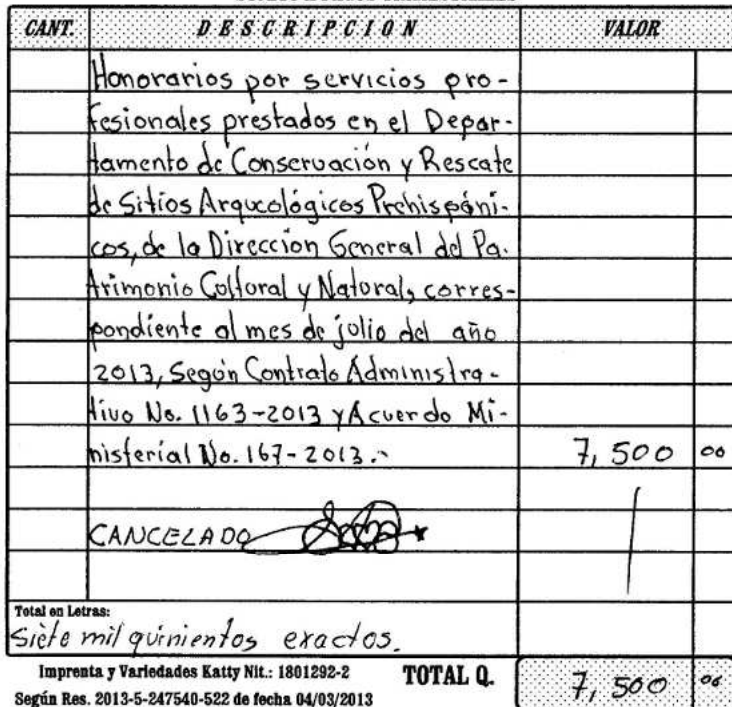 CANT. DESCRIPCION VALOR
Honorarios por servicios pro-
fesionales prestados en el Depar-
tamento de Conservación y Rescate
de Sitios Arqueológicos Prehispáni-
cos, de la Dirección General del Pa-
trimonio Cultural y Natural, corres-
pondiente al mes de julio del año
2013, Según Contrato Administra-
tivo No. 1163-2013 y Acuerdo Mi-
nisterial No. 167-2013.- 7,500 00
CANCELADO
Total en Letras:
Siete mil quinientos exactos.
Imprenta y Variedades Katty Nit.: 1801292-2 TOTAL Q. 7,500 00
Según Res. 2013-5-247540-522 de fecha 04/03/2013